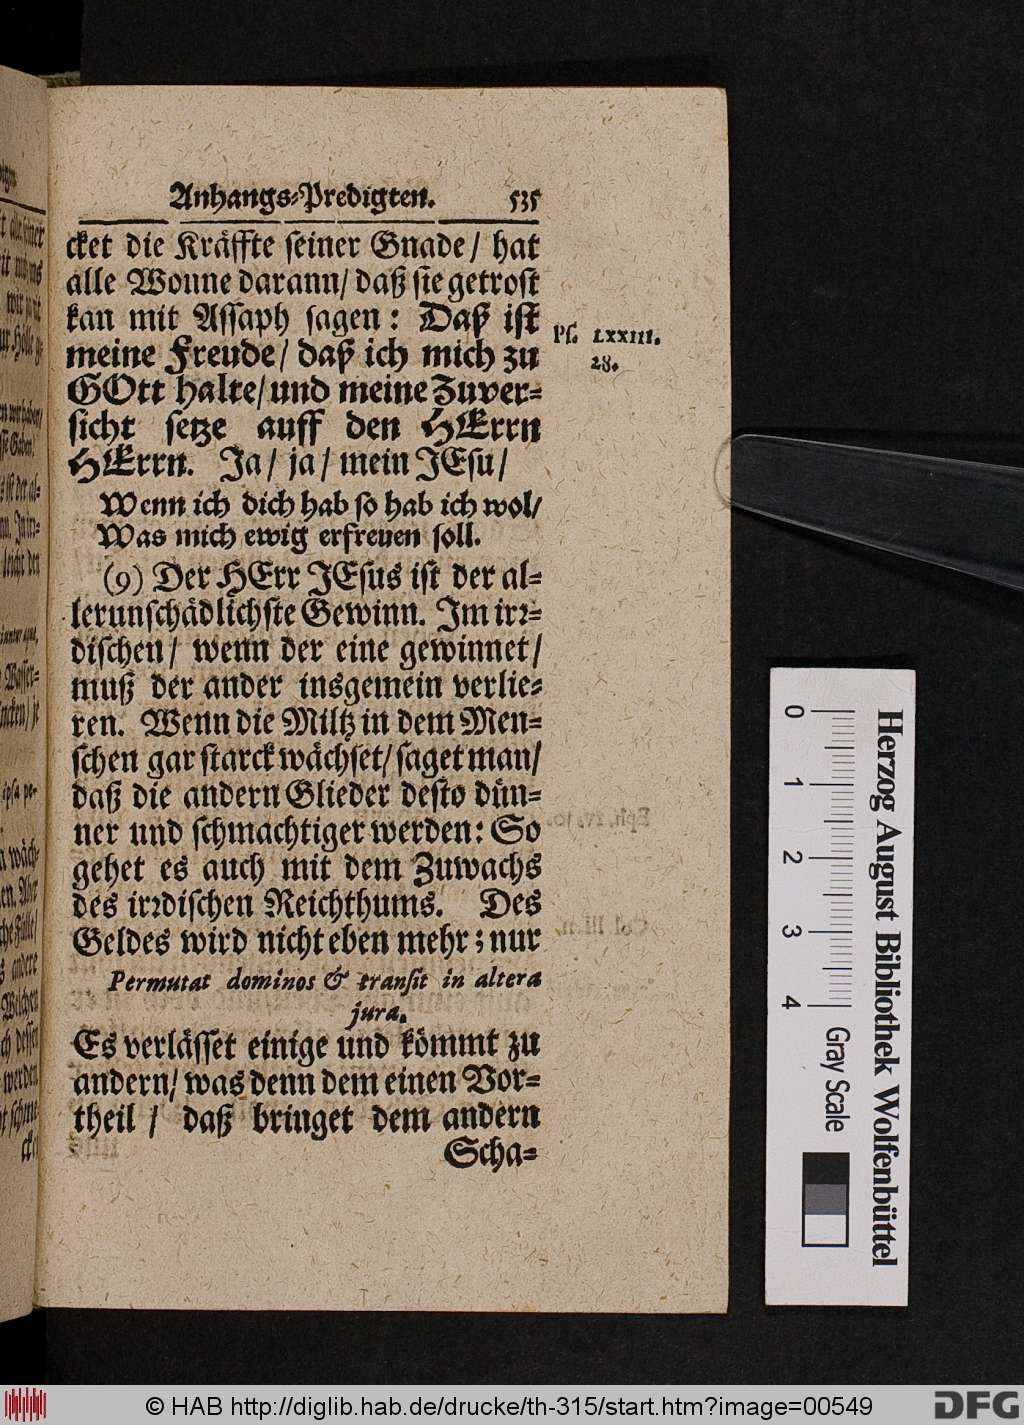 Anhangs-Predigten. 535
cket die Kräffte seiner Gnade/ hat
alle Wonne darann/ daß sie getrost
kan mit Assaph sagen: Daß ist
meine Freude/ daß ich mich zu
GOtt halte/ und meine Zuver-
sicht setze auff den HErrn
HErrn. Ja/ ja/ mein JEsu/
Ps. LXXIII.
28.
Wenn ich dich hab so hab ich wol/
Was mich ewig erfreuen soll.
(9) Der HErr JEsus ist der al-
lerunschädlichste Gewinn. Im irr-
dischen/ wenn der eine gewinnet/
muß der ander insgemein verlie-
ren. Wenn die Miltz in dem Men-
schen gar starck wächset/ saget man/
daß die andern Glieder desto dün-
ner und schmachtiger werden: So
gehet es auch mit dem Zuwachs
des irrdischen Reichthums. Des
Geldes wird nicht eben mehr; nur
Permutat dominos & transit in altera
jura.
Es verlässet einige und kömmt zu
andern/ was denn dem einen Vor-
theil / daß bringet dem andern
Scha-
Herzog August Bibliothek Wolfenbüttel
0 1 2 3 4 Gray Scale
© HAB http://diglib.hab.de/drucke/th-315/start.htm?image=00549
DFG